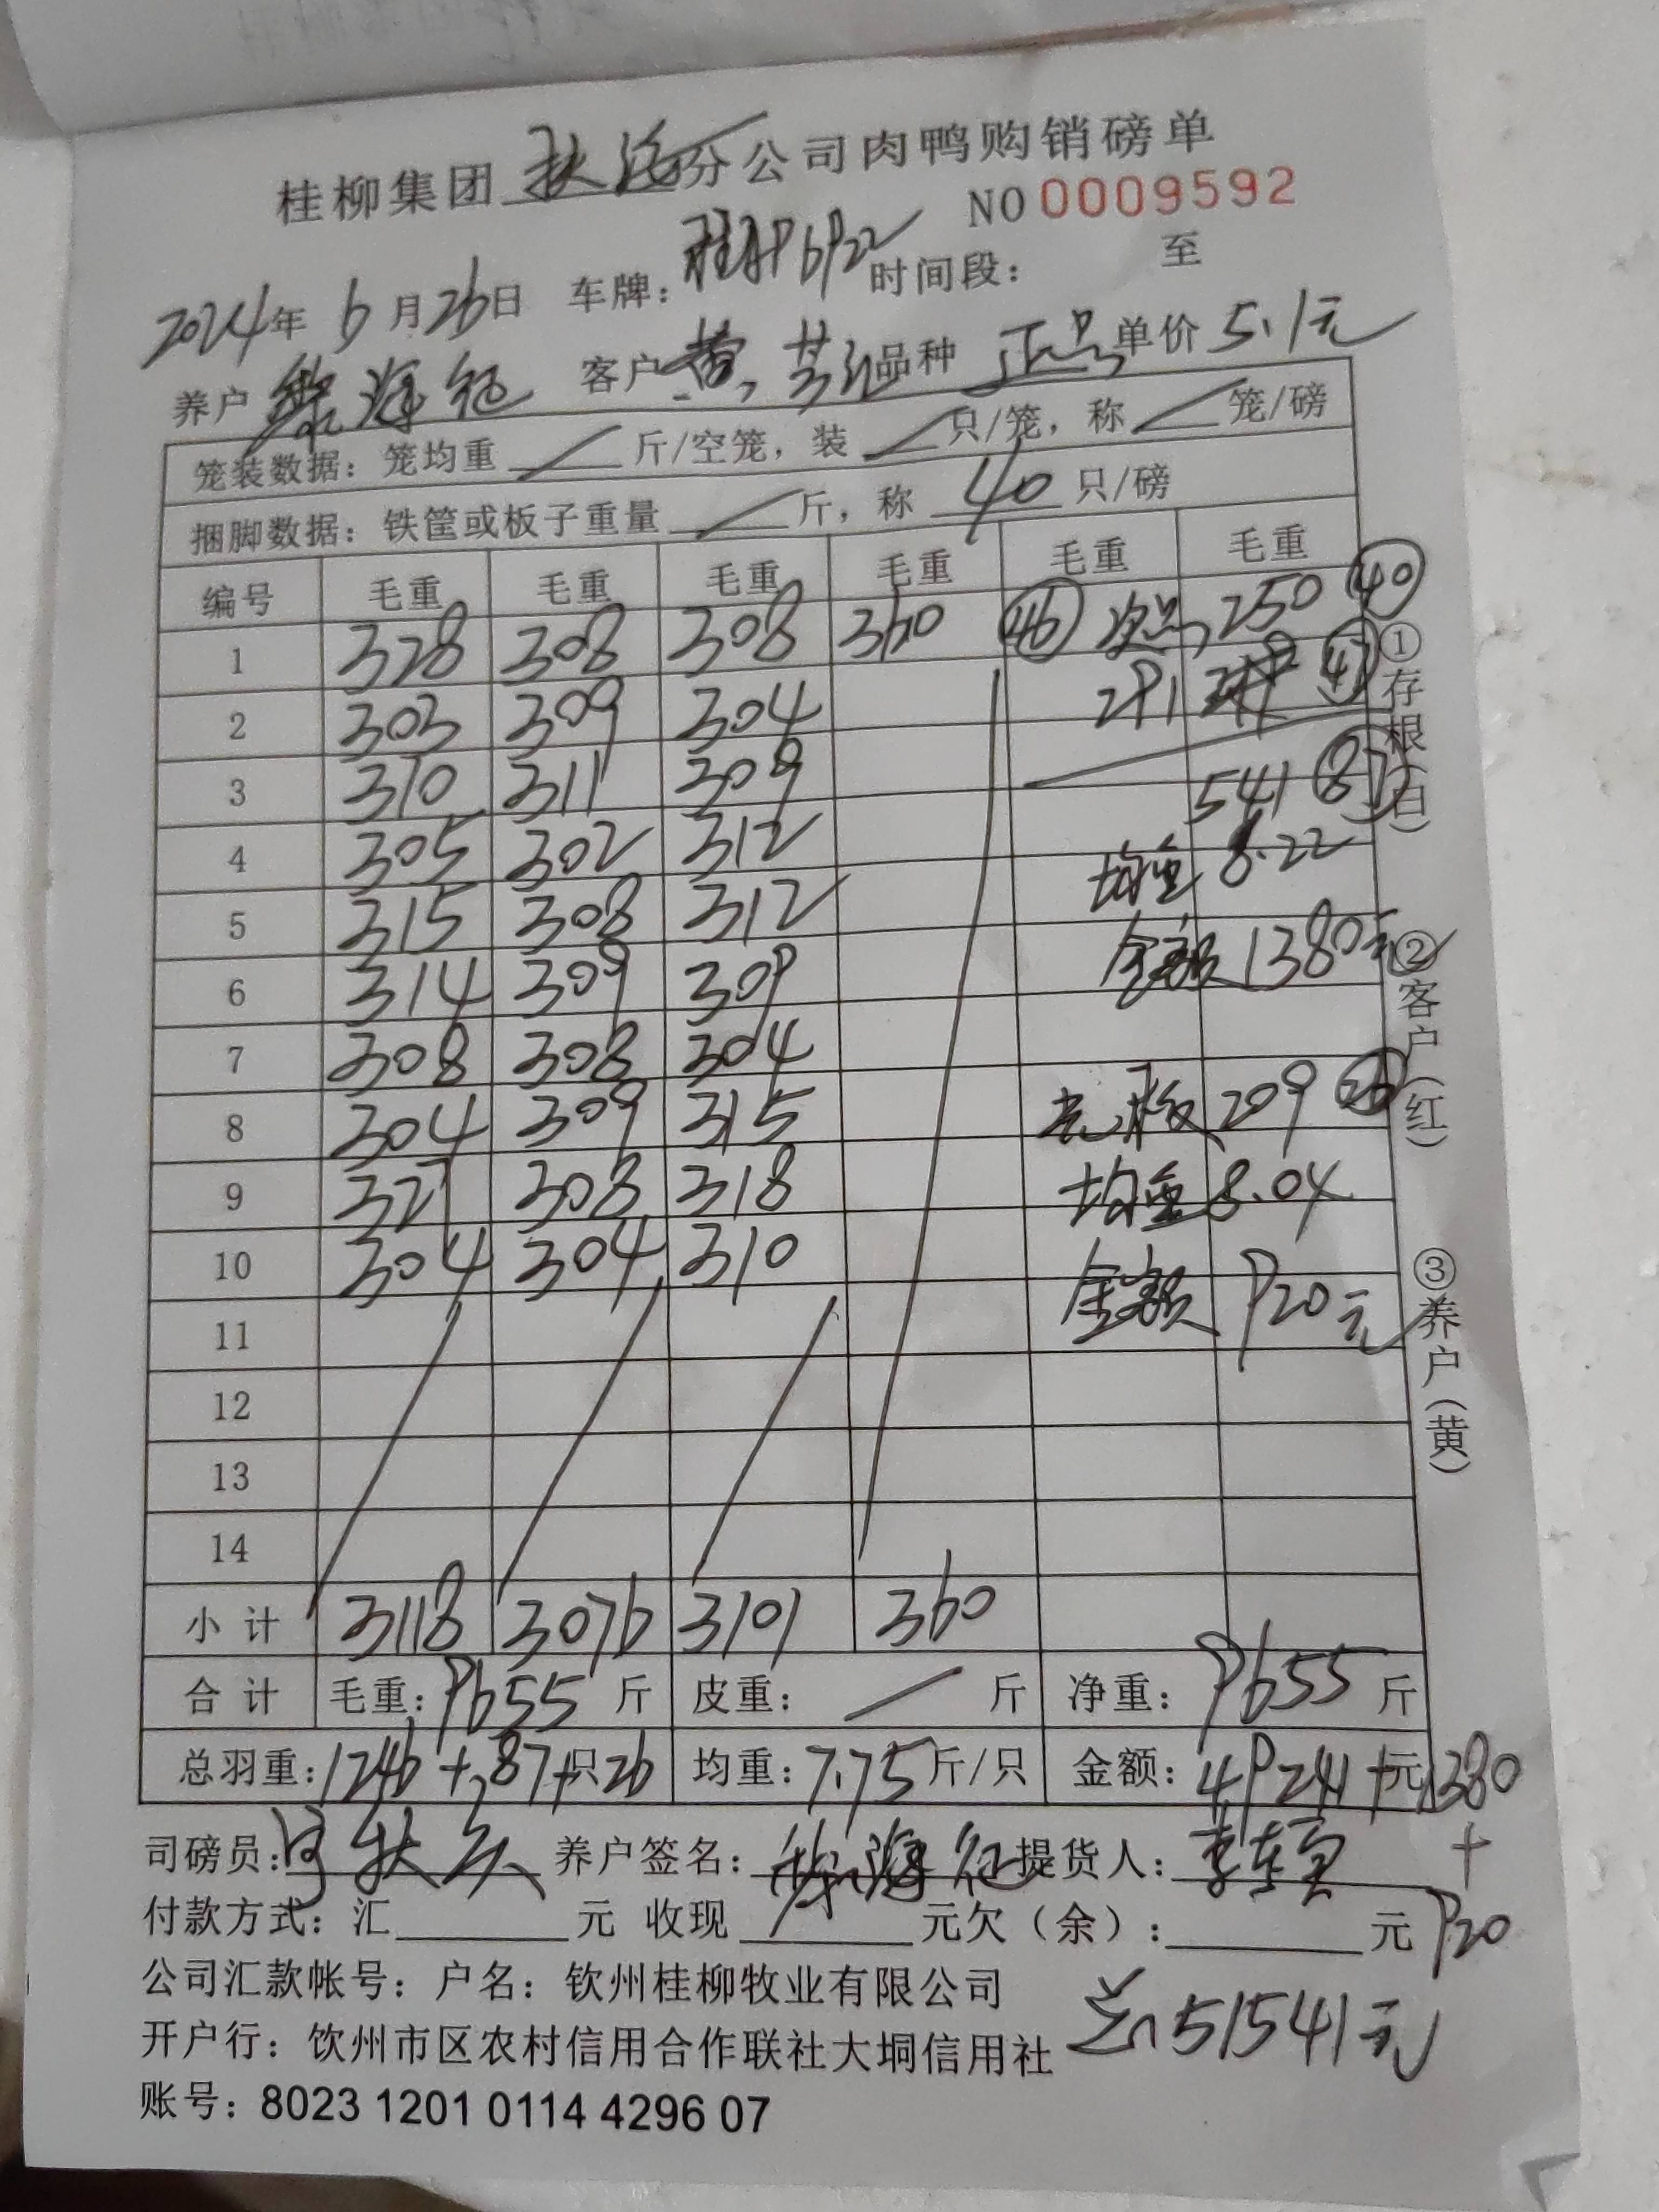 桂柳集团 分公司肉鸭购销磅单
NO 0009592
2024年 6月26日 车牌： 时间段： 至
养户 海 客户 黄 品种 正品 单价 5.1元
笼装数据：笼均重 斤/空笼，装 只/笼，称 笼/磅
捆脚数据：铁筐或板子重量 斤，称 40 只/磅
编号 毛重 毛重 毛重 毛重 毛重 毛重
1 328 308 308 360 46 次品 250 40
2 303 309 304 291
3 310 311 309 541 87
4 305 302 312 均重 6.22
5 315 308 312 金额 1380元
6 314 309 309
7 308 308 304
8 304 309 315 209 26
9 327 308 318 均重 8.04
10 304 304 310 金额 920元
11
12
13
14
小计 3118 3076 3101 360
合计 毛重：9655 斤 皮重： 斤 净重：9655 斤
总羽重：1246+87+只26 均重：7.75斤/只 金额：49241+元1380
+
920
司磅员： 养户签名： 海 提货人：李
付款方式：汇 元 收现 元欠（余）： 元
公司汇款帐号：户名：钦州桂柳牧业有限公司
开户行：钦州市区农村信用合作联社大垌信用社
总51541元
账号：8023 1201 0114 4296 07
①存根（白）
②客户（红）
③养户（黄）